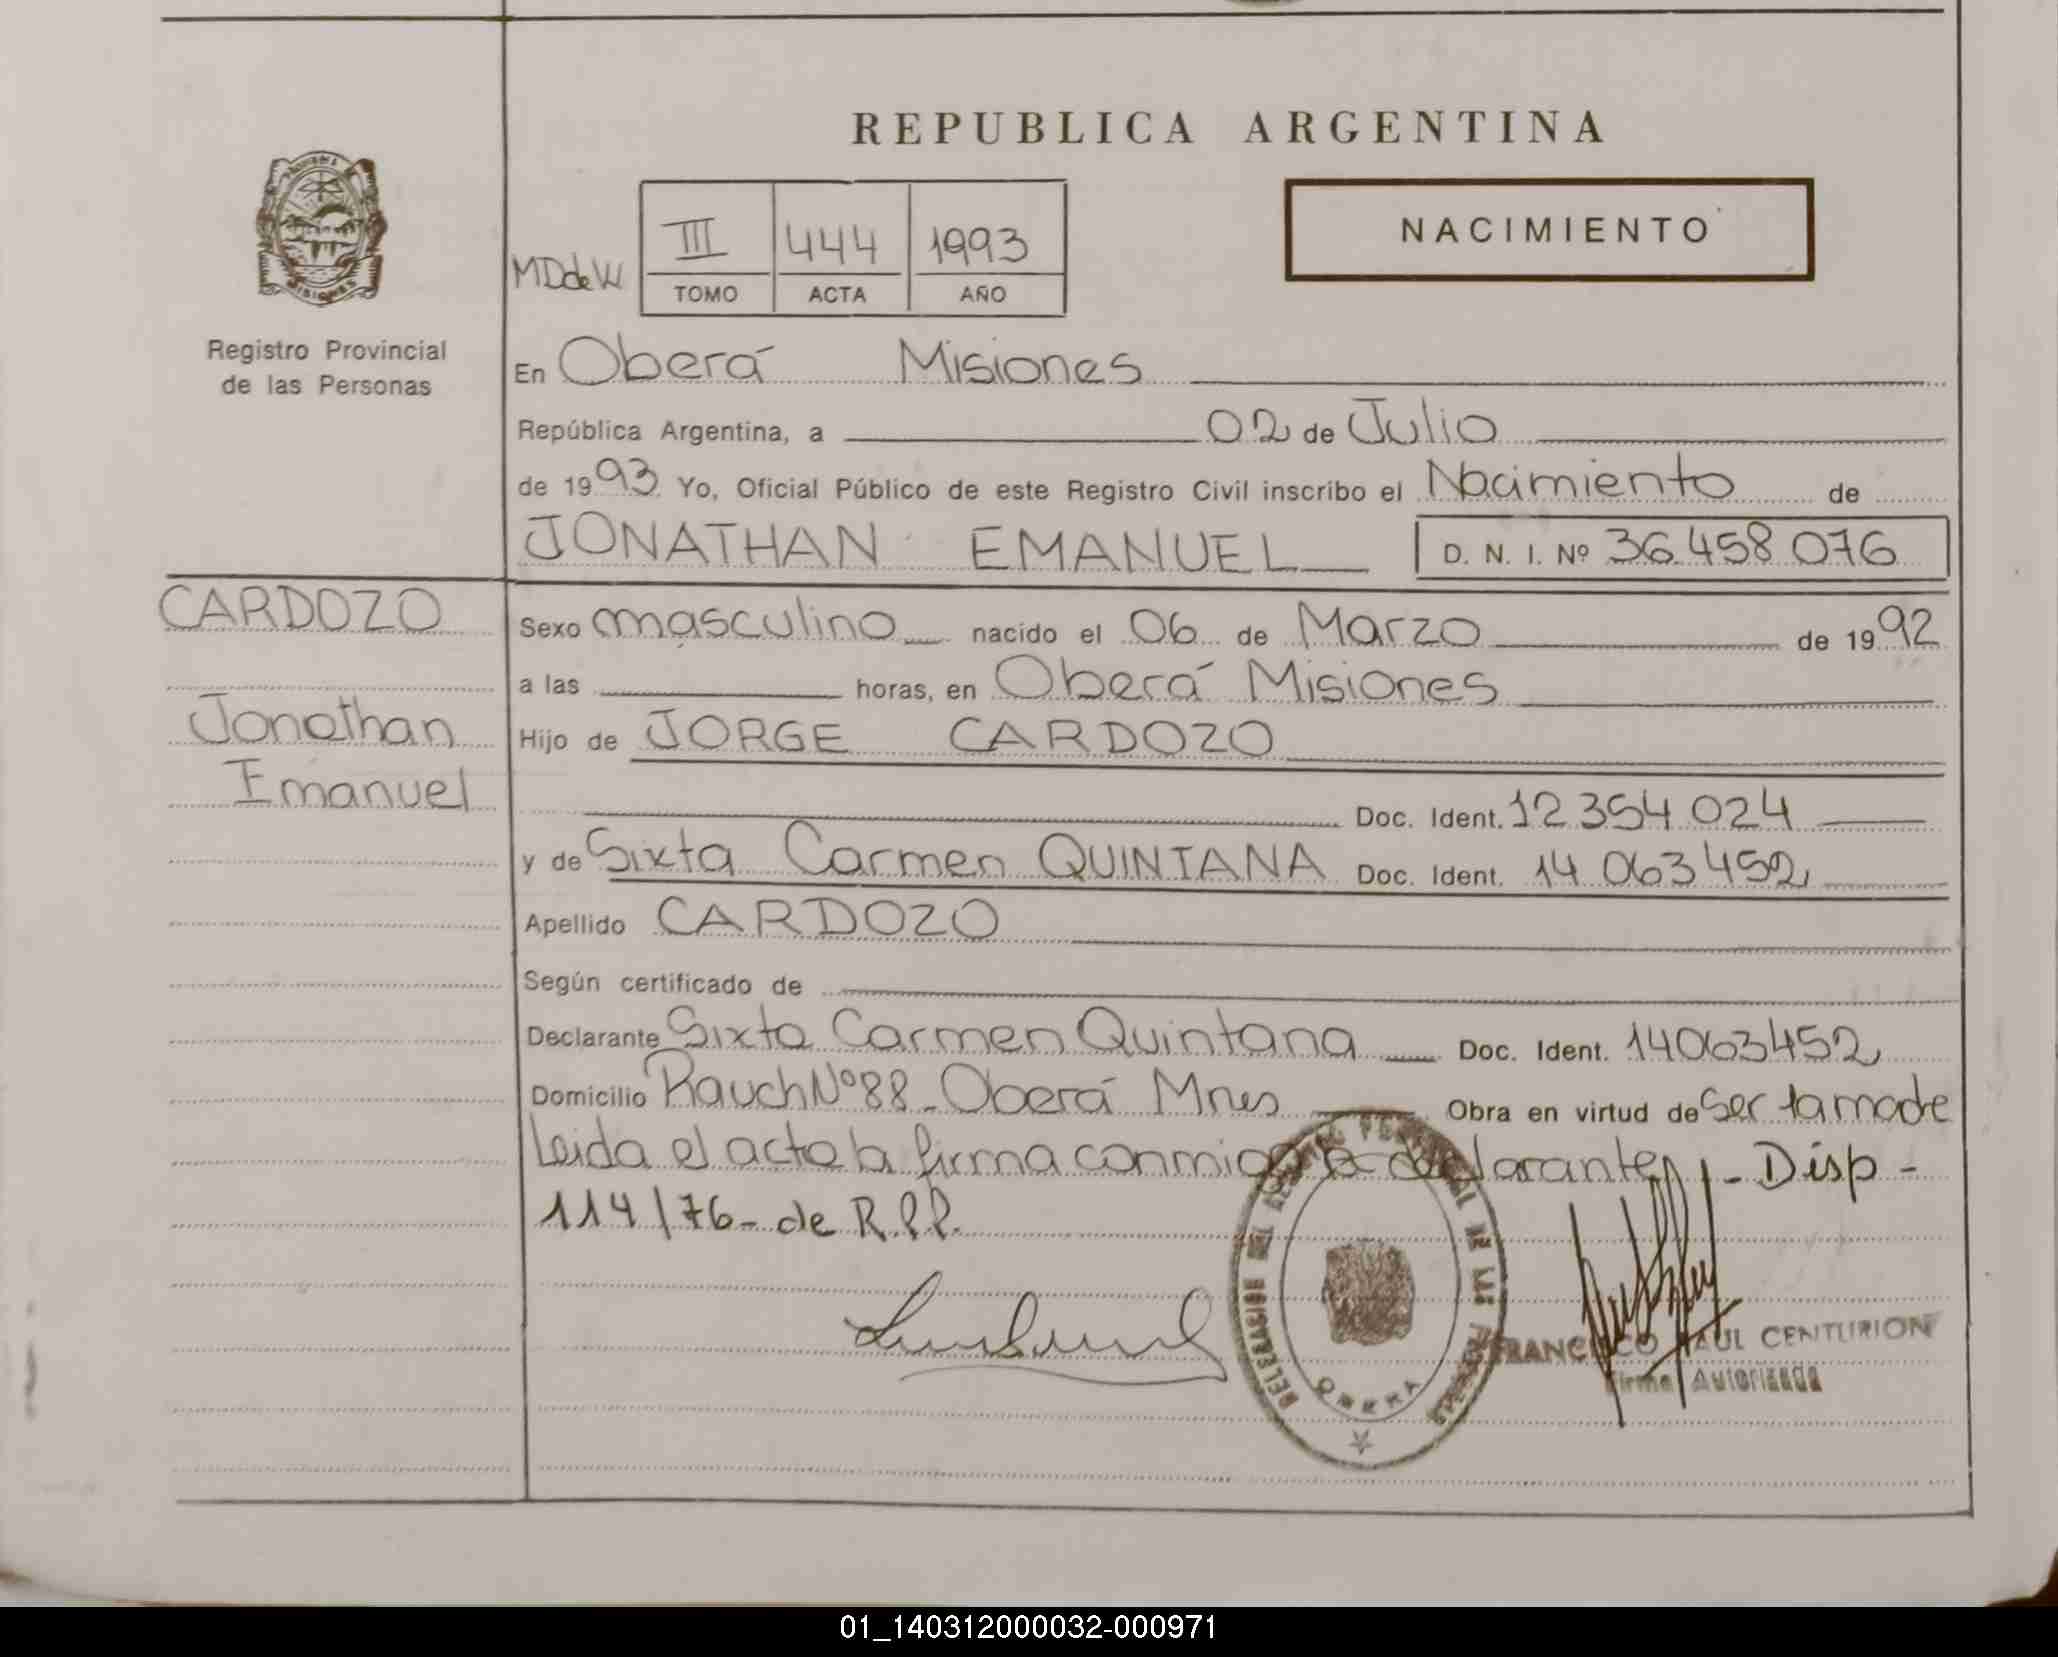 REPUBLICA ARGENTINA
NACIMIENTO
MDdeW
III 444 1993
TOMO ACTA AÑO
MISIONES
Registro Provincial
de las Personas
En Oberá Misiones
República Argentina, a 02 de Julio
de 1993 Yo, Oficial Público de este Registro Civil inscribo el Nacimiento de
JONATHAN EMANUEL D. N. I. Nº 36.458.076
CARDOZO
Jonathan
Emanuel
Sexo masculino nacido el 06 de Marzo de 1992
a las horas, en Oberá Misiones
Hijo de JORGE CARDOZO
Doc. Ident. 12 354 024
y de Sixta Carmen QUINTANA Doc. Ident. 14 063 452
Apellido CARDOZO
Según certificado de
Declarante Sixta Carmen Quintana Doc. Ident. 14063452
Domicilio Rauch Nº 88 - Oberá Mnes Obra en virtud de Ser la madre
Leida el acta la firma conmigo la declarante - Disp -
114/76 - de R.P.P.
OBERA
FRANCISCO RAUL CENTURION
Firma Autorizada
01_140312000032-000971